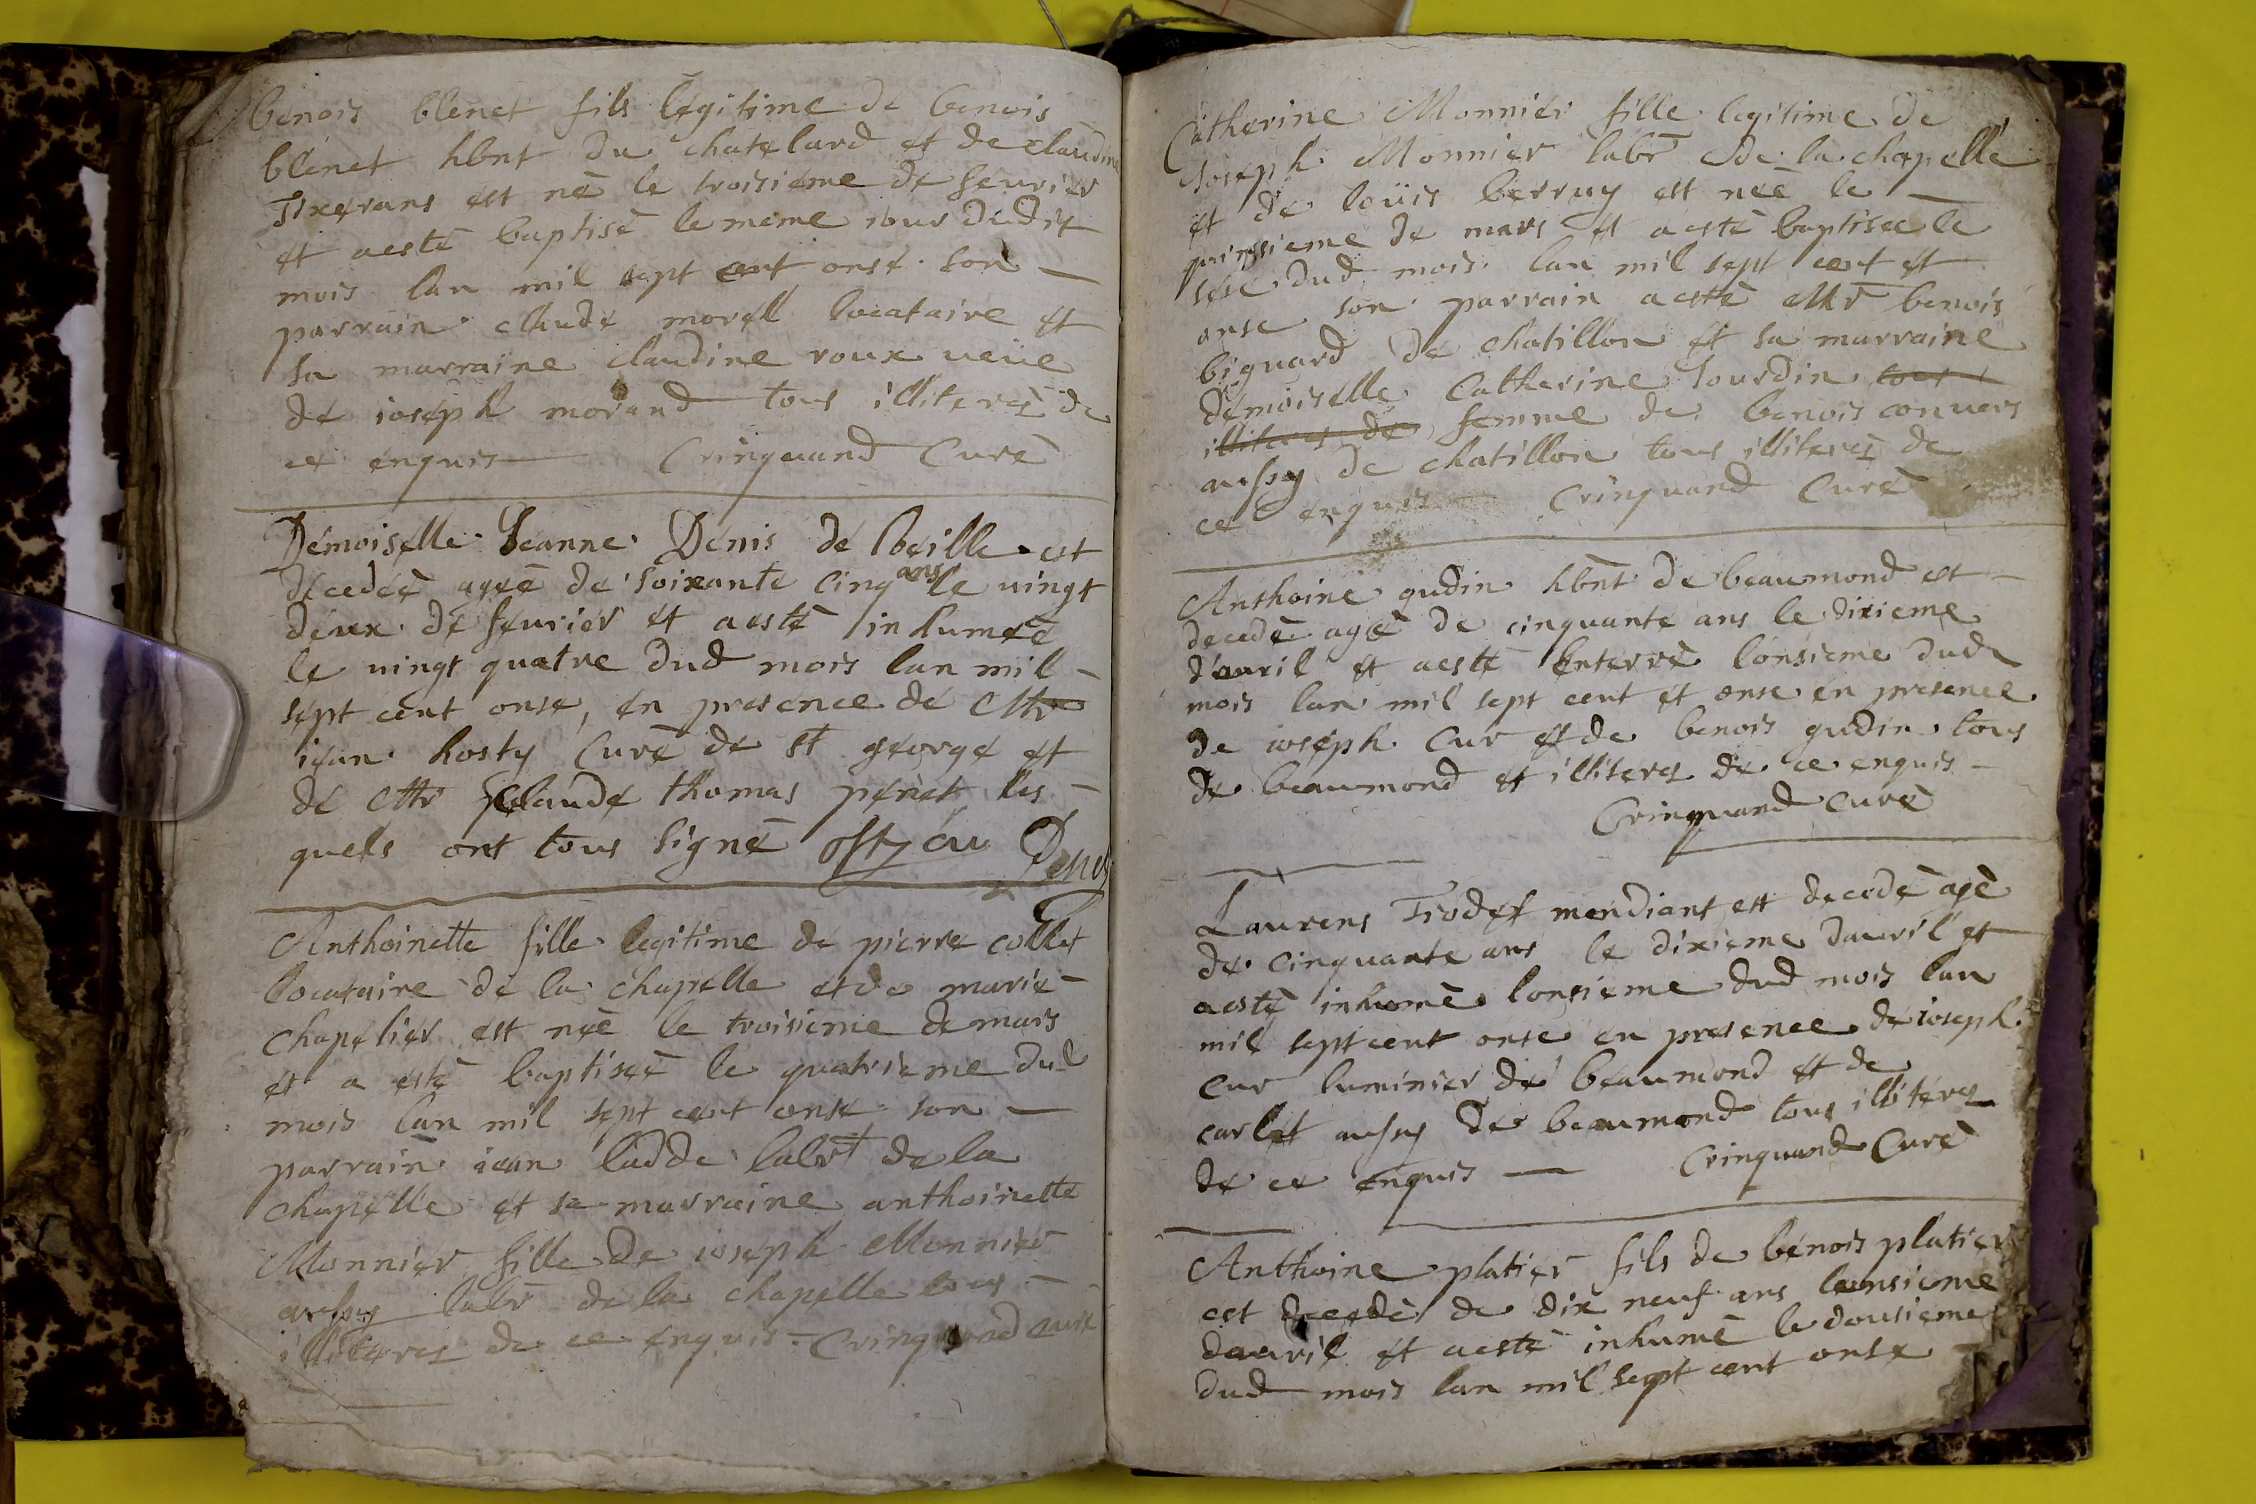 benois blenet fils legitime de benois
blenet hbnt du chatelard et de claudine
Tixerans est né le troisieme de feurier
et aesté baptisé le meme iour dudit
mois lan mil sept cent onse son
parrain claude morell locataire et
sa marraine claudine roux ueüe
de ioseph morand tous illiteres de
ce enquis Crinquand Curé
Demoiselle Jeanne Denis de est
decedeé ageé de soixante cinq ans le uingt
deux de feurier et aesté inhumeé
le uingt quatre dud mois lan mil
sept cent onse, en presence de Mr
iean hosty Curé de st george et
de Mr claude thomas perret les
quels ont tous signé osty cu
Anthoinette fille legitime de pierre collet
locataire de la chapelle et de marie
chapelier est neé le troisieme de mars
et a esté baptiseé le quatrieme dud
mois lan mil sept cent onse son
parrain iean ladde labrt de la
chapelle et sa marraine anthoinette
Monnier fille de ioseph Monnier
aussy labr de la chapelle tous
illiteres de ce enquis Crinquand curé
Catherine Monnier fille legitime de
Joseph Monnier labr de la chapelle
et de loüis berruy est neé le
quinsieme de mars et aesté baptiseé le
sese dud mois lan mil sept cent et
onse son parrain aesté Mr benois
biguard de chatillon et sa marraine
demoiselle Catherine Jourdin tous
illiteres de femme de benois convers
aussy de chatillon tous illiteres de
ce enquis Crinquand Curé
Anthoine gudin hbnt de beaumond est
decedé agé de cinquante ans le dixieme
d'auril et aesté enterré lonsieme dud
mois lan mil sept cent et onse en presence
de ioseph Cur et de benois gudin tous
de beaumond et illiteres de ce enquis
Crinquand Curé
Laurens mendiant est decedé agé
de cinquante ans le dixieme dauril et
aesté inhumé lonsieme dud mois lan
mil sept cent onse en presence de ioseph
Cur luminier de beaumond et de
carlet aussy de beaumond tous illiteres
de ce enquis Crinquand Curé
Anthoine platier fils de benois platier
est decedé de dix neuf ans lonsieme
dauril et aesté inhumé le dousieme
dud mois lan mil sept cent onse